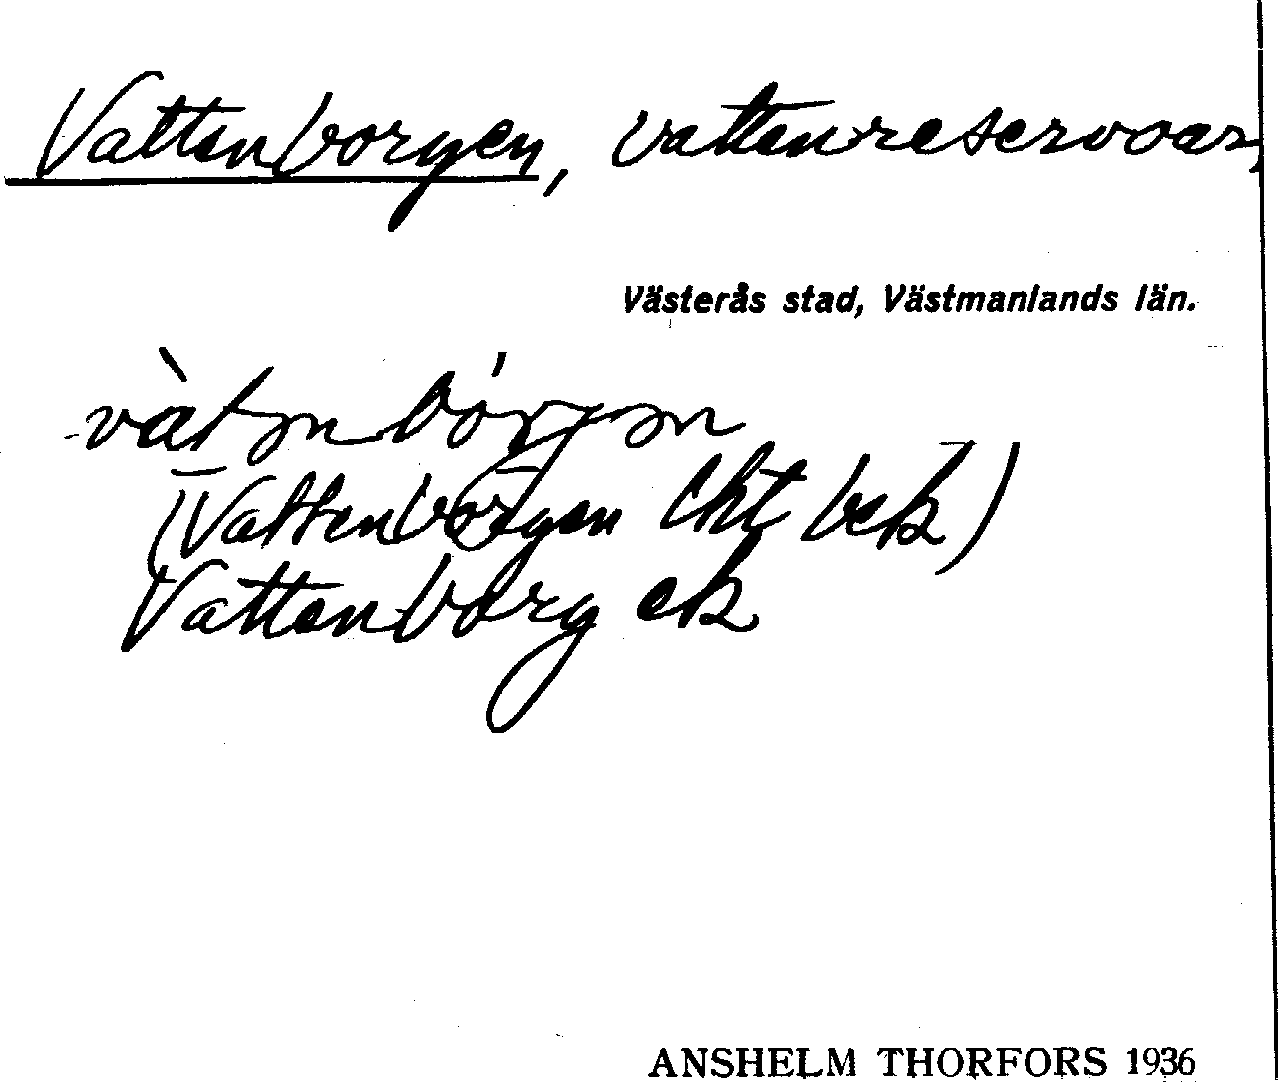 Vattenborgen, vattenreservoar,
Västerås stad, Västmanlands län.
vàtənbórjən
(Vattenborgen Cht bek)
Vattenborg ek
ANSHELM THORFORS 1936